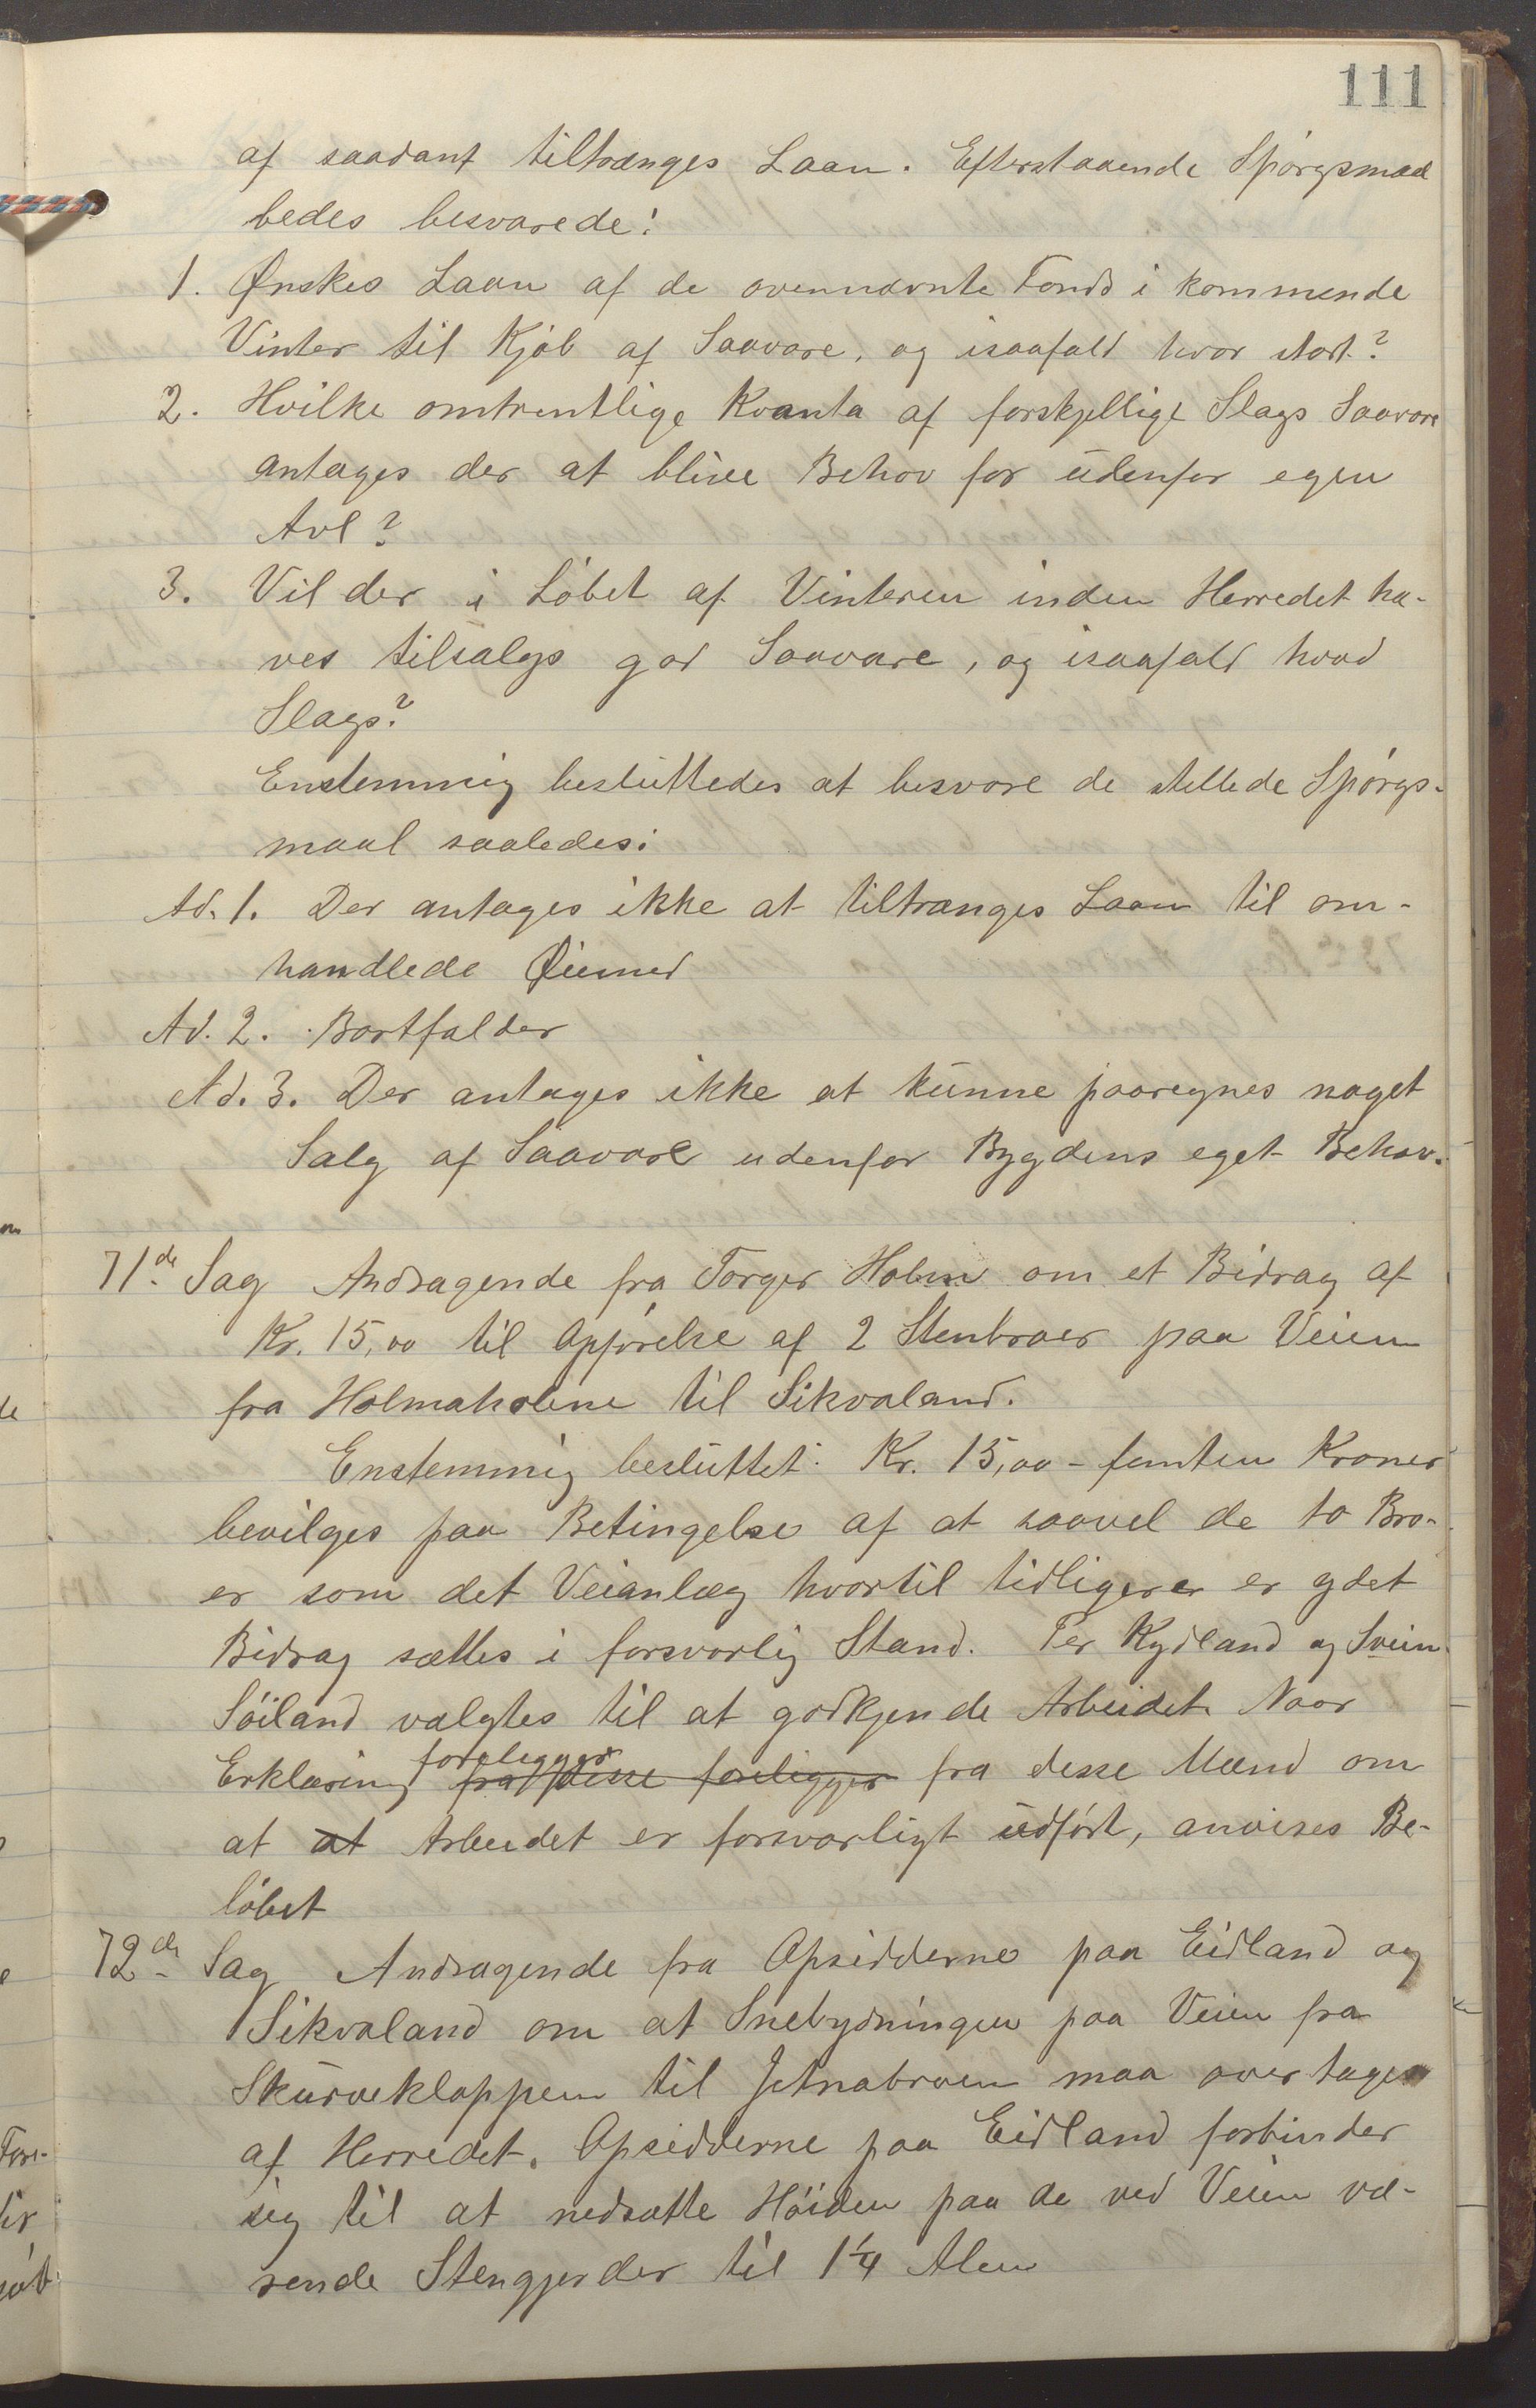 111
af saadant tiltrænges Laan. Efterstaaende Spørgsmaal
bedes besvarede:
1. Ønskes Laan af de ovennævnte Fonds i kommende
Vinter til Kjøb af Saavare, og isaafald hvor stort?
2. Hvilke omtrentlige Kvanta af forskjellige Slags Saavare
antages der at blive Behov for udenfor egen
Avl?
3. Vil der i Løbet af Vinteren inden Herredet ha-
ves tilsalgs god Saavare, og isaafald hvad
Slags?
Enstemmig besluttedes at besvare de stillede Spørgs-
maal saaledes:
Ad. 1. Der antages ikke at tiltrænges Laan til om-
handlede Øiemed
Ad. 2. Bortfalder
Ad. 3. Der antages ikke at kunne paaregnes noget
Salg af Saavare udenfor Bygdens eget Behov.
71de Sag Andragende fra Torger Holmen om et Bidrag af
Kr. 15,00 til Opførelse af 2 Stenbroer paa Veien
fra Holmaholene til Sikvaland.
Enstemmig besluttet: Kr. 15,00 - femten Kroner
bevilges paa Betingelse af at saavel de to Bro-
er som det Veianlæg hvortil tidligere er ydet
Bidrag sættes i forsvarlig Stand. Per Kydland og Svein
Søiland valgtes til at godkjende Arbeidet. Naar
Erklæring forelegger fra disse foreligger fra desse Mænd om
at at Arbeidet er forsvarligt udført, anvises Be-
løbet
72de Sag Andragende fra Opsidderne paa Eidland og
Sikvaland om at Snebrydningen paa Veien fra
Skurvekloppen til Jetnabroen maa overtages
af Herredet. Opsidderne paa Eidland forbinder
sig til at nedsætte Høiden paa de ved Veien væ-
rende Stengjerder til 1¼ Alen